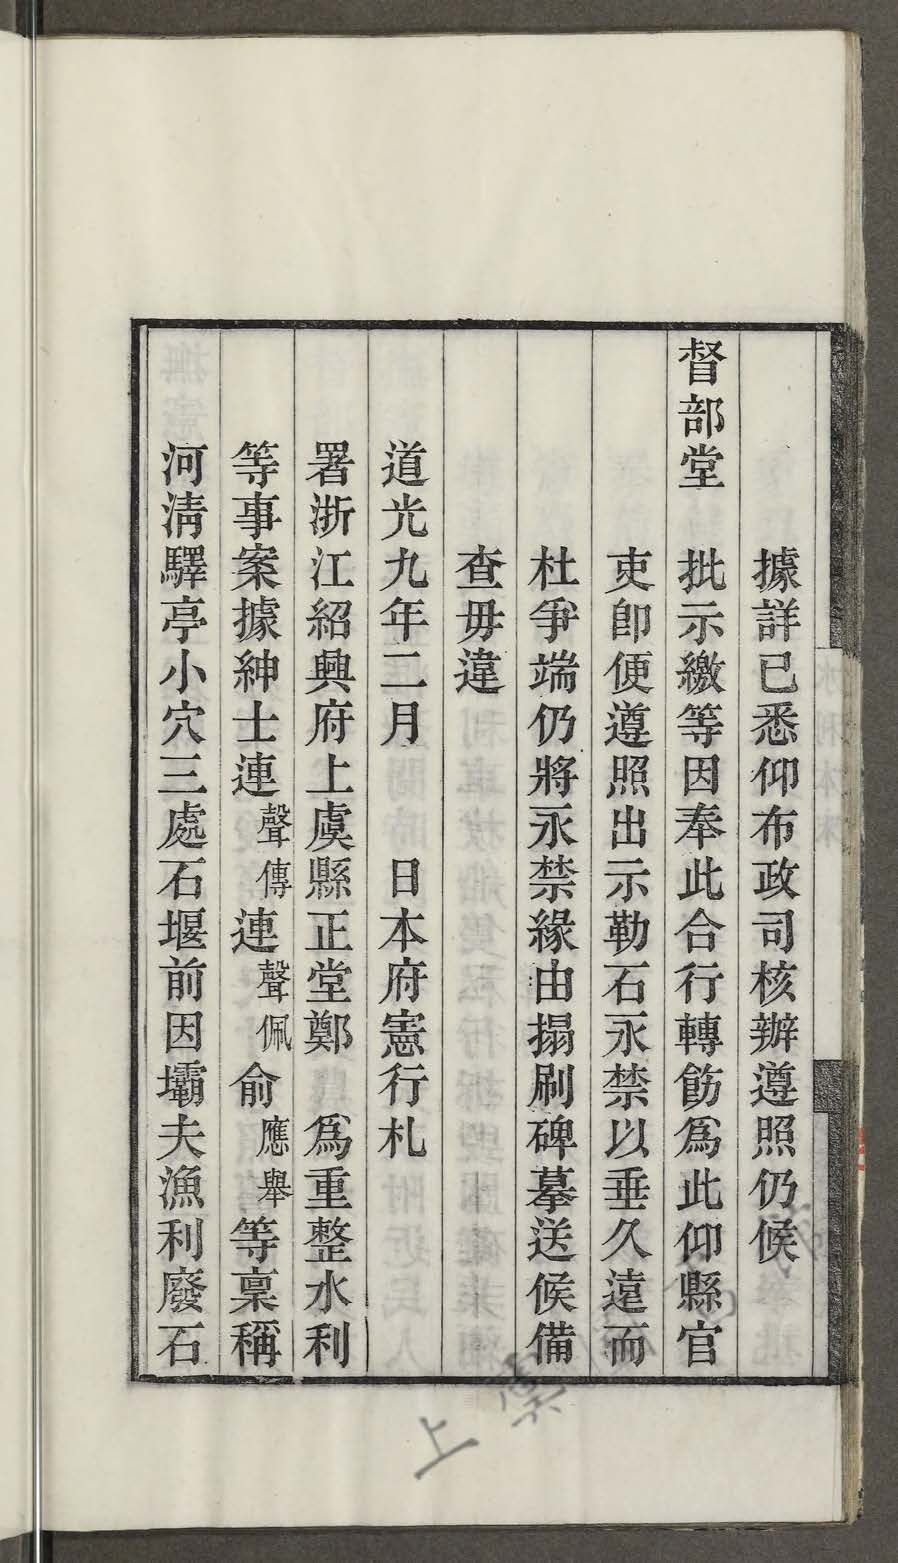 據詳已悉仰布政司核辦遵照仍候
督部堂　批示繳等因奉此合行轉飭爲此仰縣官
吏卽便遵照出示勒石永禁以垂久遠而
杜爭端仍將永禁緣由搨刷碑摹送候備
查毋違
道光九年二月　日本府憲行札
署浙江紹興府上虞縣正堂鄭　爲重整水利
等事案據紳士連聲傳連聲佩俞應舉等稟稱
河淸驛亭小穴三處石堰前因壩夫漁利廢石
上虞